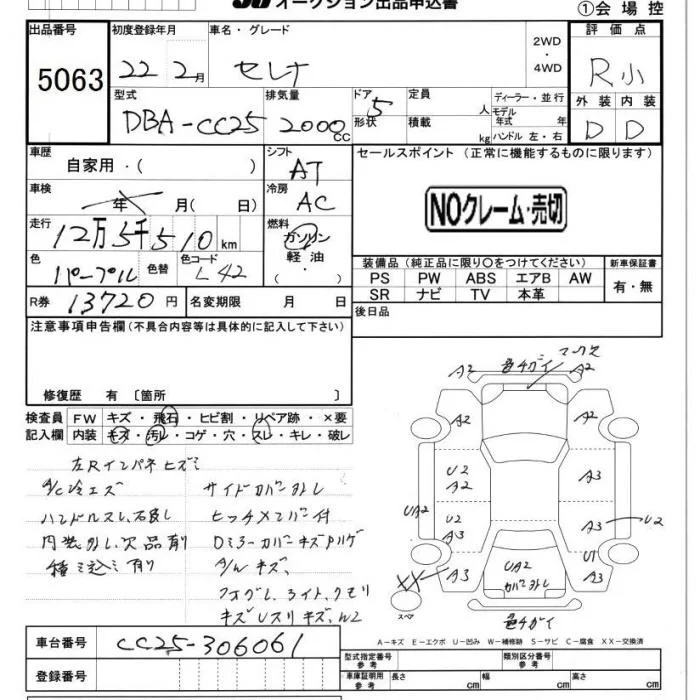 オークション出品申込書
①会場控
出品番号
5063
初度登録年月
22 2月
車名・グレード
セレナ
2WD
・
4WD
評価点
R小
外装 内装
D D
型式
DBA-CC25
排気量
2000 CC
ドア 5
形状
定員 人
積載 kg
ディーラー・並行
モデル年式 年
ハンドル 左・右
車歴
自家用・( )
車検
年 月( 日)
走行
12万5千510 km
色
パープル
色替
色コード
L42
R券 13720円
名変期限 月 日
シフト
AT
冷房
AC
燃料
ガソリン
軽油・
( )
セールスポイント (正常に機能するものに限ります)
NOクレーム・売切
装備品(純正品に限り○をつけてください)
PS PW ABS エアB AW
SR ナビ TV 本革
新車保証書
有・無
後日品
注意事項申告欄(不具合内容等は具体的に記入して下さい)
修復歴 有〔箇所 〕
検査員記入欄
FW キズ・飛石・ヒビ割・リペア跡・×要
内装 キズ・汚レ・コゲ・穴・スレ・キレ・破レ
左Rインパネヒズミ
A/C冷エズ
ハンドルスレ、石良し
内装外し、欠品有り
種ミ込ミ有り
サイドカバー外レ
ヒッチメンバー付
Dミラーカバーキズ
A/Wキズ、
フォグレ、ライト、クモリ
キズUスリキズ、W2
A2 色チガイ A2
A2 A2
U2 A2 A3
UA2 U2 A2 A3 U2
UA2 カバー外レ U1
XX A3 A3
スペア
色チガイ
A-キズ E-エクボ U-凹み W-補修跡 S-サビ C-腐食 XX-交換済
車台番号 CC25-306061
登録番号
型式指定番号 参考
類別区分番号 参考
車庫証明用 参考
長さ cm 幅 cm 高さ cm